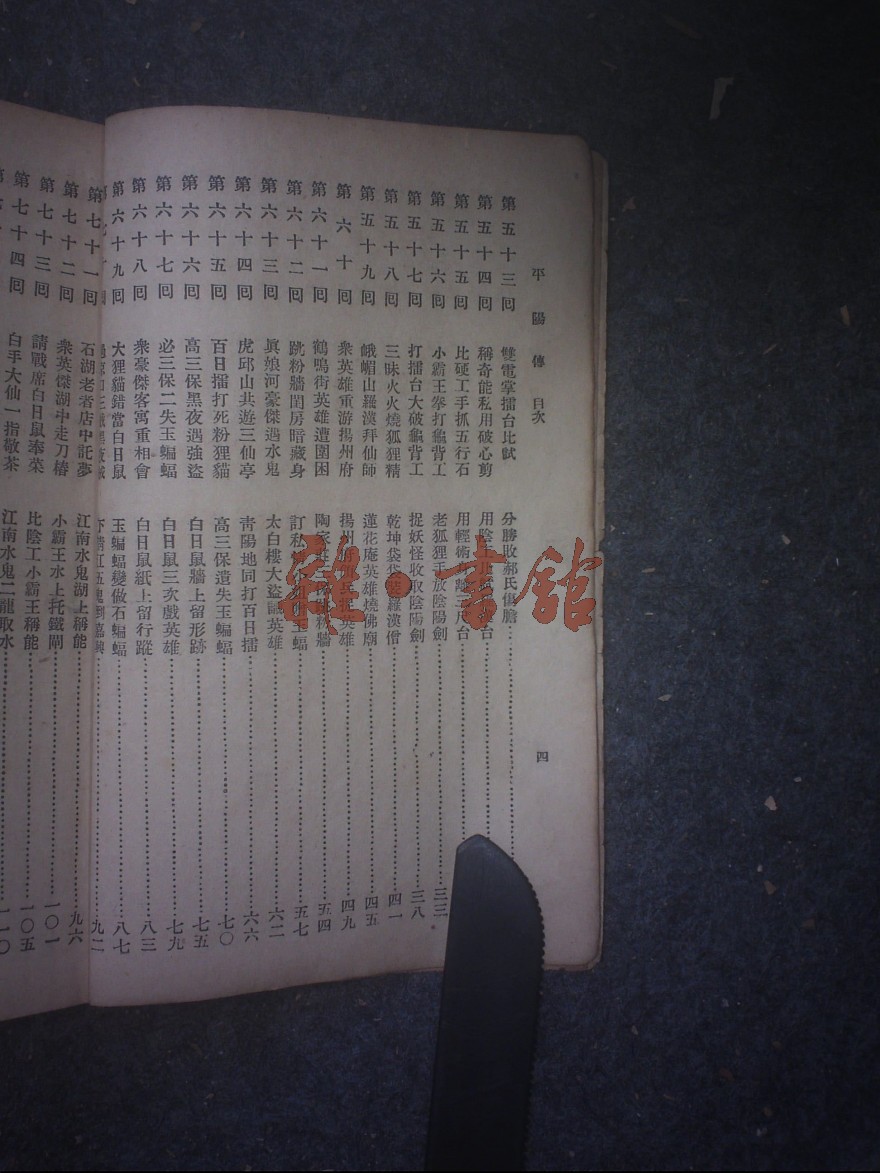 平陽傳 目次 四
第五十三囘 雙電掌擂台比試 分勝敗郝氏傷膽
第五十四囘 稱奇能私用破心剪 用陰 台
第五十五囘 比硬工手抓五行石 用輕術 台
第五十六囘 小霸王拳打龜背工 老狐狸手放陰陽劍 三三
第五十七囘 打擂台大破龜背工 捉妖怪收取陰陽劍 三八
第五十八囘 三昧火火燒狐狸精 乾坤袋袋裝羅漢僧 四一
第五十九囘 峨嵋山羅漢拜仙師 蓮花庵英雄燒佛廟 四五
第六十囘 衆英雄重游揚州府 揚州 兵捉英雄 四九
第六十一囘 鶴鳴街英雄遭圍困 陶家莊 粉牆 五四
第六十二囘 跳粉牆閨房暗藏身 訂私 玉蝠 五七
第六十三囘 眞娘河豪傑遇水鬼 太白樓大盜 英雄 六二
第六十四囘 虎邱山共遊三仙亭 靑陽地同打百日擂 六六
第六十五囘 百日擂打死粉狸貓 高三保遺失玉蝙蝠 七〇
第六十六囘 高三保黑夜遇強盜 白日鼠牆上留形跡 七五
第六十七囘 必三保二失玉蝙蝠 白日鼠三次戲英雄 七九
第六十八囘 衆豪傑客寓重相會 白日鼠紙上留行蹤 八三
第六十九囘 大狸貓錯當白日鼠 玉蝙蝠變做石蝙蝠 八七
九二
第七十一囘 石湖老者店中託夢 江南水鬼湖上稱能 九六
第七十二囘 衆英傑湖中走刀樁 小霸王水上托鐵閘 一〇一
第七十三囘 請戰席白日鼠奉菜 比陰工小霸王稱能 一〇五
第七十四囘 白手大仙一指敬茶 江南水鬼二龍取水 一一〇
雜·書館